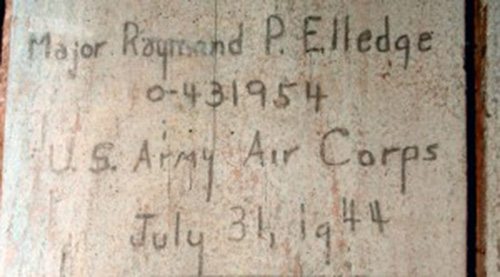 Major Raymand P. Elledge
O-431954
U.S. Army Air Corps
July 31, 1944